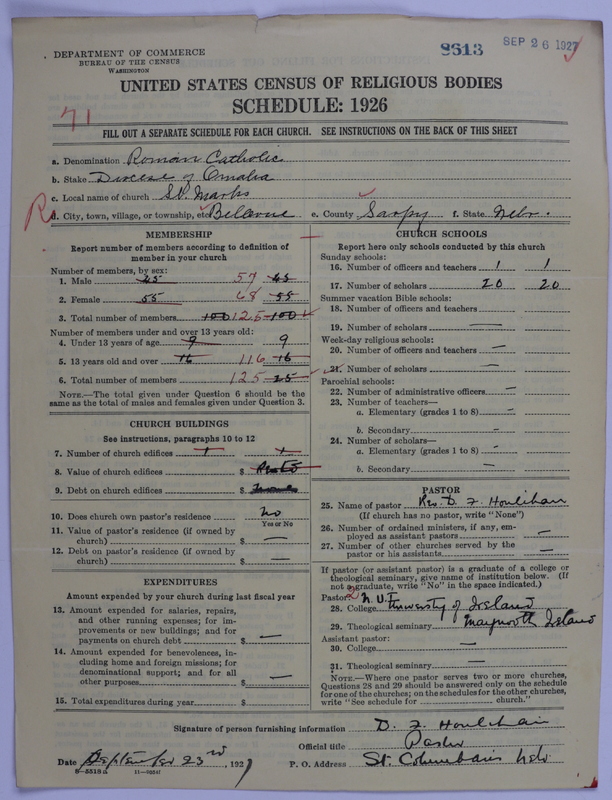 8613 SEP 26 1927
DEPARTMENT OF COMMERCE
BUREAU OF THE CENSUS
WASHINGTON
UNITED STATES CENSUS OF RELIGIOUS BODIES
SCHEDULE: 1926
71
FILL OUT A SEPARATE SCHEDULE FOR EACH CHURCH. SEE INSTRUCTIONS ON THE BACK OF THIS SHEET
a. Denomination Roman Catholic
b. Stake Diocese of Omaha
c. Local name of church St. Marks
R
d. City, town, village, or township, etc. Bellevue e. County Sarpy f. State Nebr.
MEMBERSHIP
Report number of members according to definition of
member in your church
Number of members, by sex:
1. Male 45 57 45
2. Female 55 68 55
3. Total number of members 100 125 100
Number of members under and over 13 years old:
4. Under 13 years of age 9 9
5. 13 years old and over 16 116 16
6. Total number of members 125 25
NOTE.—The total given under Question 6 should be
the same as the total of males and females given under Question 3.
CHURCH BUILDINGS
See instructions, paragraphs 10 to 12
7. Number of church edifices 1 1
8. Value of church edifices $
9. Debt on church edifices $
10. Does church own pastor's residence No
Yes or No
11. Value of pastor's residence (if owned by
church) $ —
12. Debt on pastor's residence (if owned by
church) $ —
EXPENDITURES
Amount expended by your church during last fiscal year
13. Amount expended for salaries, repairs,
and other running expenses; for im-
provements or new buildings; and for
payments on church debt $ —
14. Amount expended for benevolences, in-
cluding home and foreign missions; for
denominational support; and for all
other purposes $ —
15. Total expenditures during year $
CHURCH SCHOOLS
Report here only schools conducted by this church
Sunday schools:
16. Number of officers and teachers 1 1
17. Number of scholars 20 20
Summer vacation Bible schools:
18. Number of officers and teachers
19. Number of scholars —
Week-day religious schools:
20. Number of officers and teachers —
21. Number of scholars —
Parochial schools:
22. Number of administrative officers —
23. Number of teachers—
a. Elementary (grades 1 to 8) —
b. Secondary —
24. Number of scholars—
a. Elementary (grades 1 to 8) —
b. Secondary —
PASTOR
25. Name of pastor Rev. D. F. Houlihan
(If church has no pastor, write "None")
26. Number of ordained ministers, if any, em-
ployed as assistant pastors —
27. Number of other churches served by the
pastor or his assistants —
If pastor (or assistant pastor) is a graduate of a college or
theological seminary, give name of institution below. (If
not a graduate, write "No" in the space indicated.)
Pastor: 2
28. College N. U. University of Ireland
29. Theological seminary Maynooth Ireland
Assistant pastor:
30. College —
31. Theological seminary —
NOTE.—Where one pastor serves two or more churches,
Questions 28 and 29 should be answered only on the schedule
for one of the churches; on the schedules for the other churches,
write "See schedule for church."
Signature of person furnishing information D. F. Houlihan
Official title Pastor
Date September 23rd, 1927 P. O. Address St. Columbans Nebr
8—5518a